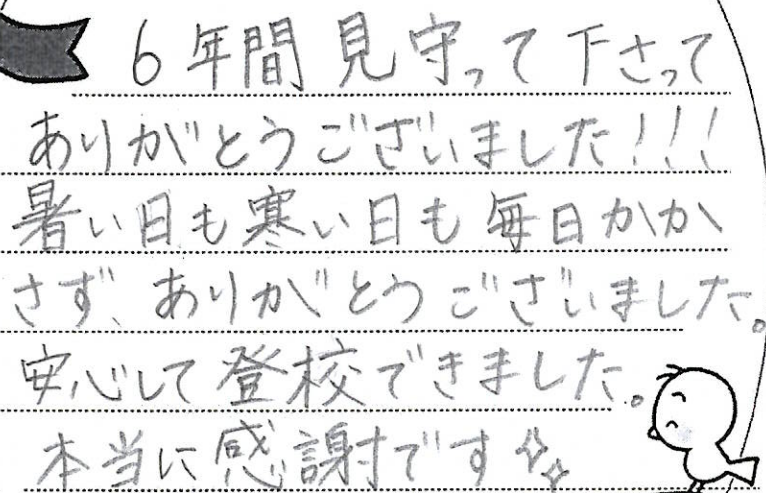 6年間見守って下さって
ありがとうございました!!!
暑い日も寒い日も毎日かか
さず、ありがとうございました。
安心して登校できました。
本当に感謝です✨